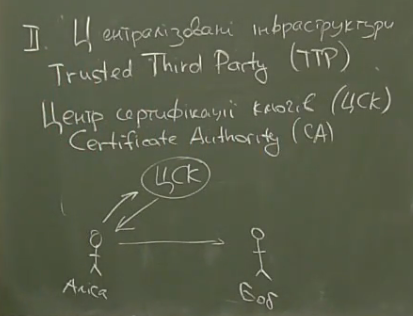 II. Централізовані інфраструктури
Trusted Third Party (TTP)
Центр сертифікації ключів (ЦСК)
Certificate Authority (CA)
ЦСК
Аліса
Боб